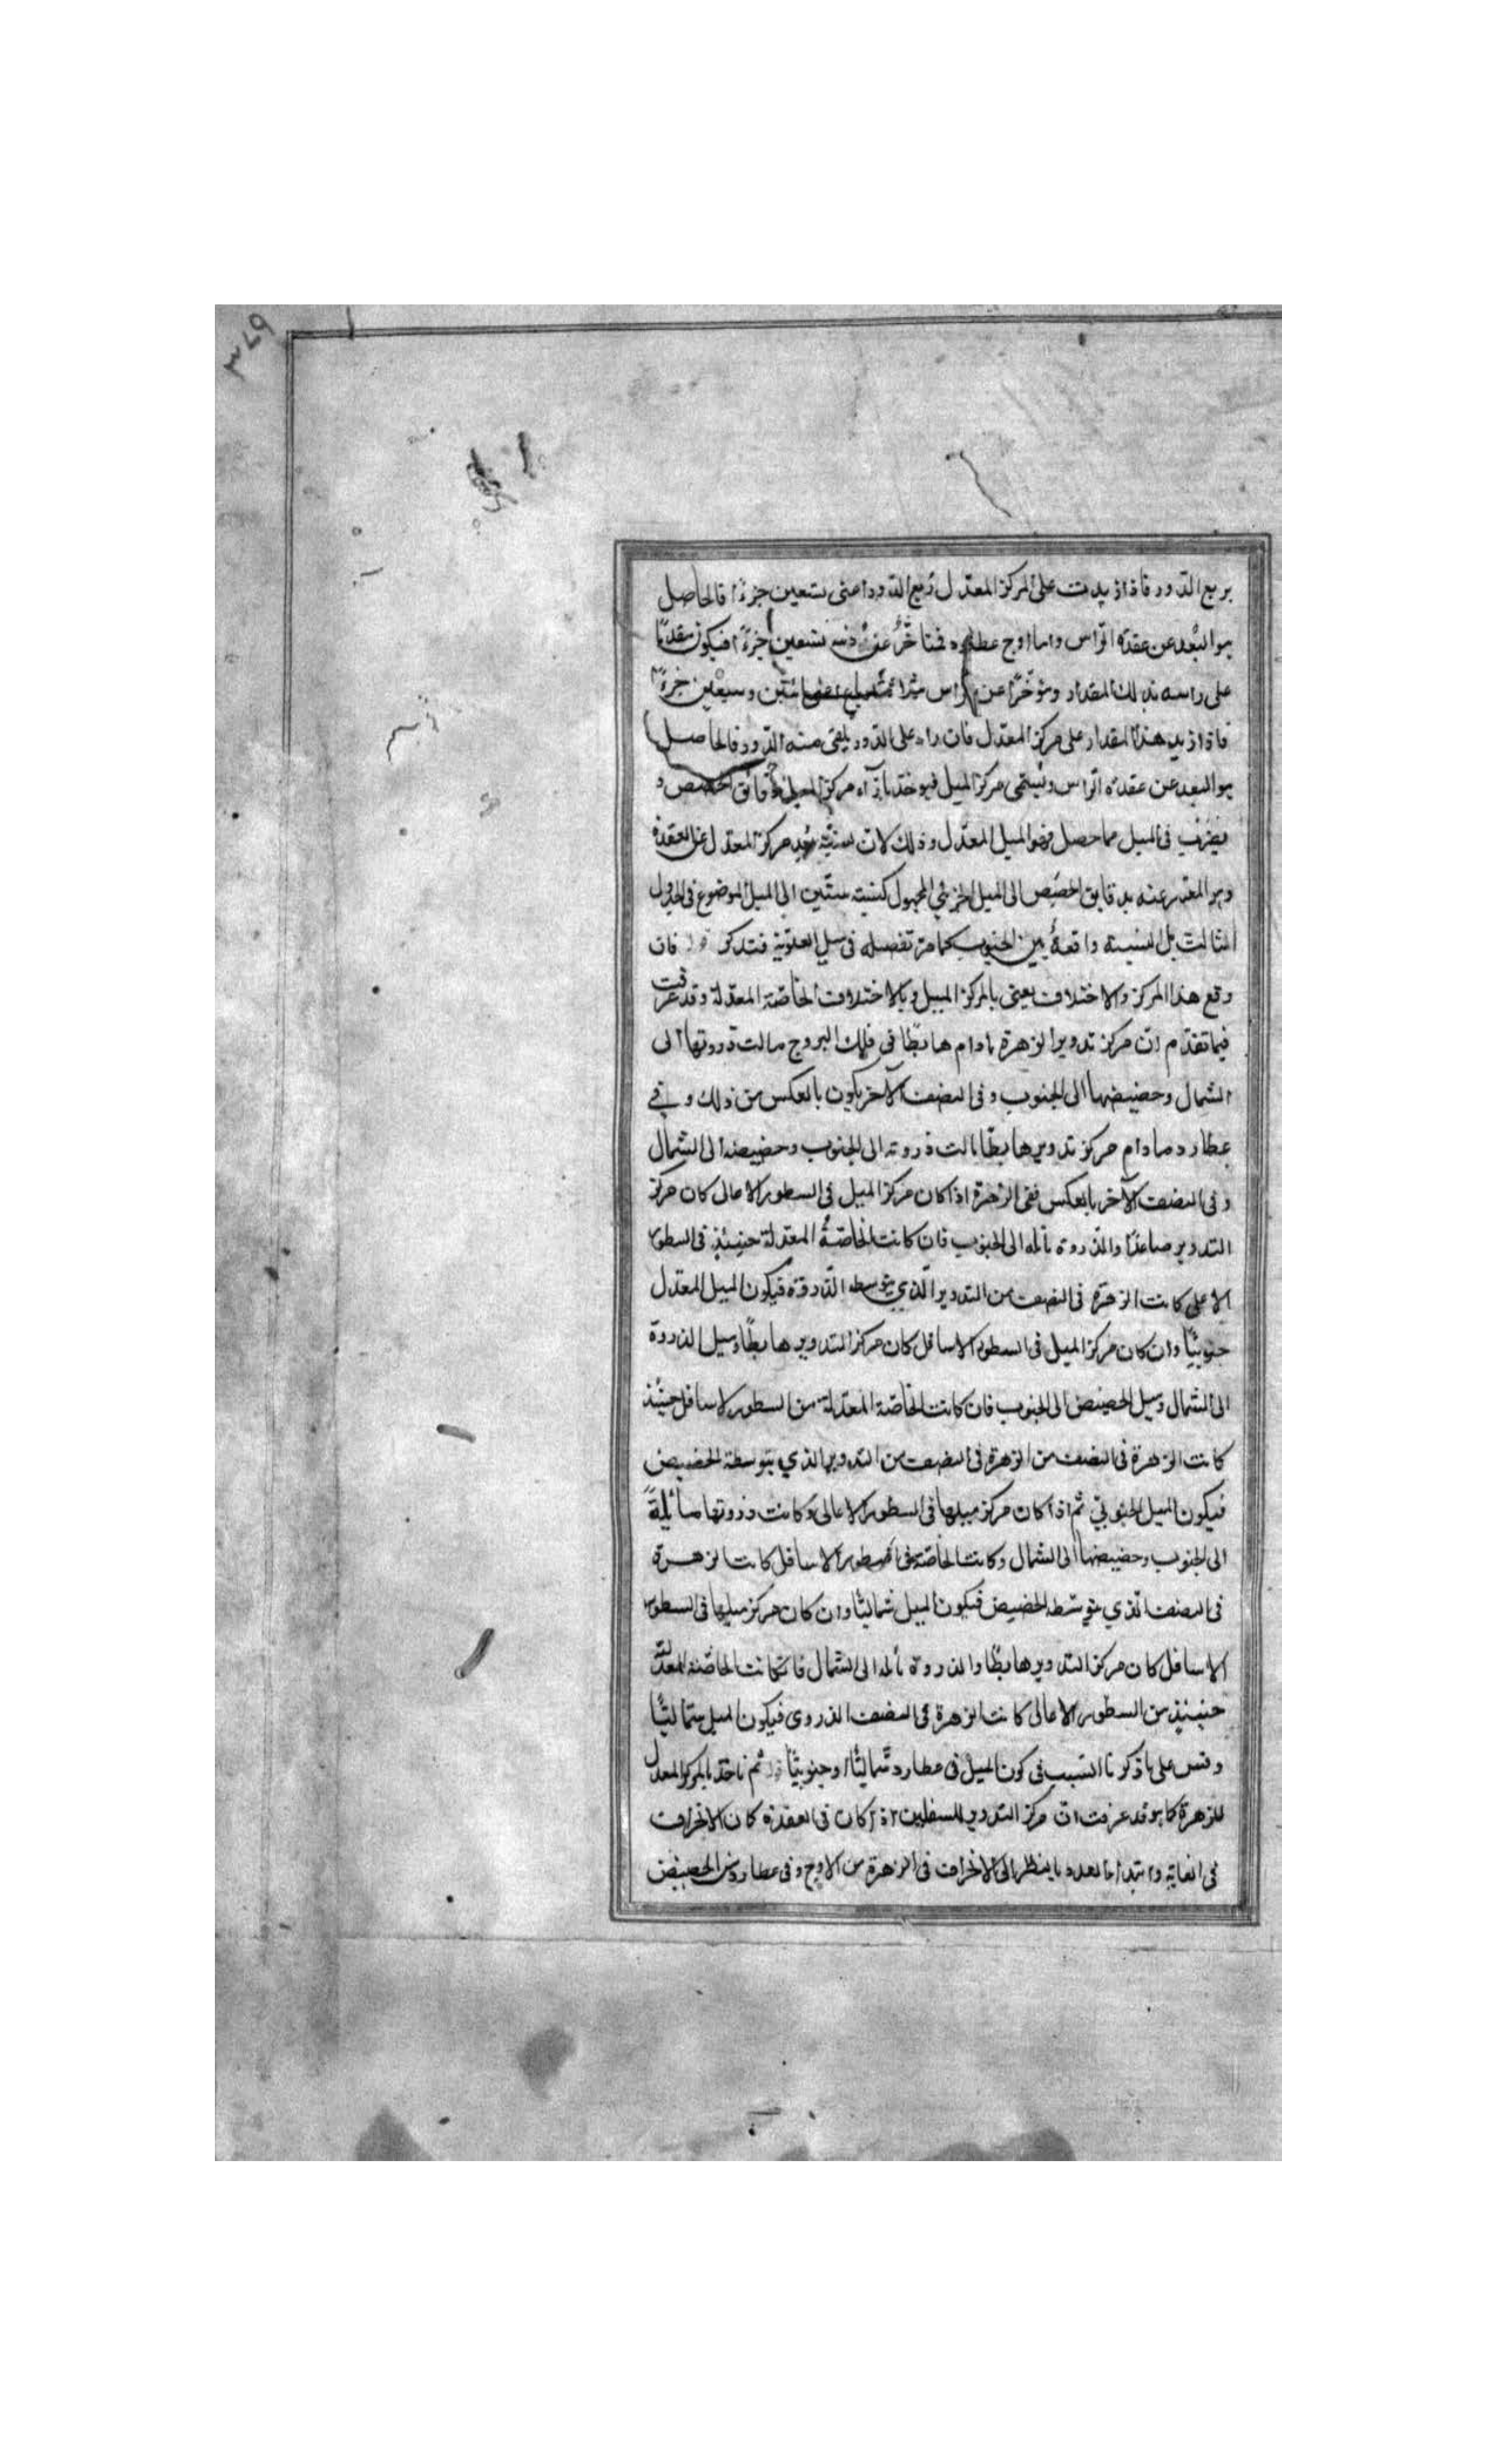 ٣٧٩
بربع الدّور فاذا زيدت على المركز المعدّل ربع الدّور اعنى تسعين جزءًا فالحاصل
هو البُعد عن عقدة الرّاس واما اوج عطارد فمتأخّرٌ عن ذنبه تسعين جزءًا فيكون متقدّمًا
على راسه بذلك المقدار ومؤخّرًا عن الراس مائتين وسبعين جزءًا
فاذا زيد هذا المقدار على مركز المعدّل فان زاد على الدّور يلقى منه الدّور فالحاصل
هو البعد عن عقدة الرّاس ويُسمّى مركز الميل فيوخذ بازآء مركز الميل دقايق الحصص و
فيضرب فى الميل فما حصل فهو الميل المعدّل وذلك لانّ نسبة بُعد مركز المعدل عن العقدة
وهو المعتبر عنه بدقايق الحصص الى الميل الجزئي المجهول كنسبة ستّين الى الميل الموضوع فى الجدول
الثالث بل النسبة واقعةٌ بين الجيوب كما مرّ تفصيله فى ميل العلويّة فتذكر فان
وقع هذا المركز والاختلاف يعنى بالمركز الميل وبالاختلاف الخاصّة المعدلة وقد عرفت
فيما تقدّم انّ مركز تدوير الزهرة مادام هابطًا فى فلك البروج مالت ذروتها الى
الشمال وحضيضها الى الجنوب وفى النصف الآخر يكون بالعكس من ذلك وفي
عطارد مادام مركز تدويره هابطًا مالت ذروته الى الجنوب وحضيضه الى الشمال
وفى النصف الآخر بالعكس ففى الزهرة اذا كان مركز الميل فى السطور الاعالى كان مركز
التدوير صاعدًا والذروة مائلة الى الجنوب فان كانت الخاصّةُ المعدلة حينئذٍ فى السطور
الاعلى كانت الزهرة فى النصف من التدوير الّذي يتوسطه الذّروة فيكون الميل المعدل
جنوبيًّا وان كان مركز الميل فى السطور الاسافل كان مركز التدوير هابطًا وميل الذروة
الى الشمال وميل الحضيض الى الجنوب فان كانت الخاصّة المعدلة من السطور الاسافل حينئذ
كانت الزهرة فى النصف من الزهرة فى النصف من التدوير الذي يتوسطه الحضيض
فيكون الميل الجنوبيّ ثم اذا كان مركز ميلها فى السطور الاعالى وكانت ذروتها مائلةً
الى الجنوب وحضيضها الى الشمال وكانت الخاصّة فى السطور الاسافل كانت الزهرة
فى النصف الّذي يتوسّطه الحضيض فيكون الميل شماليًّا وان كان مركز ميلها فى السطور
الاسافل كان مركز التدوير هابطًا والذروة مائلة الى الشمال فان كانت الخاصّة المعدّلة
حينئذٍ من السطور الاعالى كانت الزهرة فى النصف الذروى فيكون الميل شماليًّا
وقس على ما ذكرنا السّبب فى كون الميل فى عطارد شماليًّا وجنوبيًّا ثم ناخذ بالمركز المعدل
للزهرة كما هو قد عرفت انّ مركز التدوير للسفليين اذا كان فى العقدة كان الانحراف
فى الغاية وابتداء العدد بالنظر الى الانحراف فى الزهرة من الاوج وفى عطارد من الحضيض